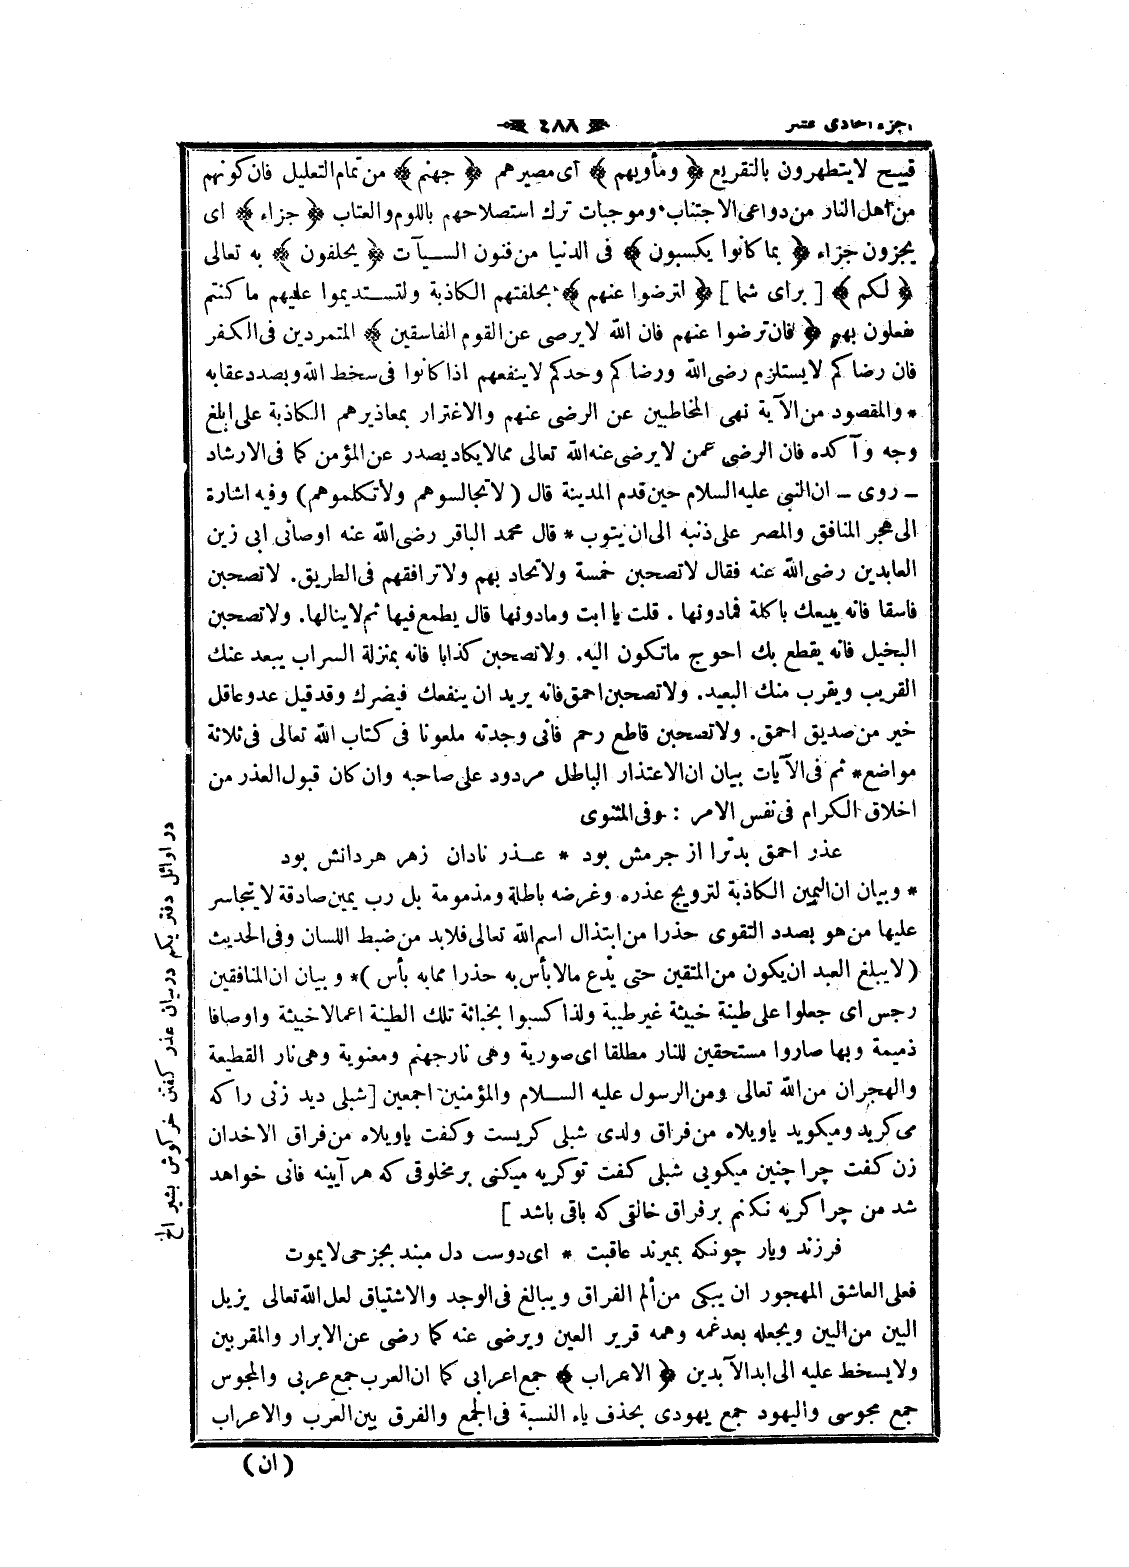 الجزء الحادى عشر
٤٨٨
قبيح لايتطهرون بالتقريع ﴿ ومأويهم ﴾ اى مصيرهم ﴿ جهنم ﴾ من تمام التعليل فان كونهم
من اهل النار من دواعى الاجتناب وموجبات ترك استصلاحهم باللوم والعتاب ﴿ جزاء ﴾ اى
يجزون جزاء ﴿ بما كانوا يكسبون ﴾ فى الدنيا من فنون السيآت ﴿ يحلفون ﴾ به تعالى
﴿ لكم ﴾ [ براى شما ] ﴿ لترضوا عنهم ﴾ بحلفتهم الكاذبة ولتستديموا عليهم ما كنتم
تفعلون بهم ﴿ فان ترضوا عنهم فان الله لا يرضى عن القوم الفاسقين ﴾ المتمردين فى الكفر
فان رضاكم لايستلزم رضى الله ورضاكم وحدكم لاينفعهم اذا كانوا فى سخط الله وبصدد عقابه
* والمقصود من الآية نهى المخاطبين عن الرضى عنهم والاغترار بمعاذيرهم الكاذبة على ابلغ
وجه وآكده فان الرضى عمن لايرضى عنه الله تعالى ممالايكاد يصدر عن المؤمن كما فى الارشاد
ـ روى ـ ان النبى عليه السلام حين قدم المدينة قال ( لاتجالسوهم ولاتكلموهم ) وفيه اشارة
الى هجر المنافق والمصر على ذنبه الى ان يتوب * قال محمد الباقر رضى الله عنه اوصانى ابى زين
العابدين رضى الله عنه فقال لاتصحبن خمسة ولاتحاد بهم ولاترافقهم فى الطريق. لاتصحبن
فاسقا فانه يبيعك باكلة فمادونها . قلت يا ابت ومادونها قال يطمع فيها ثم لاينالها. ولاتصحبن
البخيل فانه يقطع بك احوج ماتكون اليه. ولاتصحبن كذابا فانه بمنزلة السراب يبعد عنك
القريب ويقرب منك البعيد. ولاتصحبن احمق فانه يريد ان ينفعك فيضرك وقدقيل عدو عاقل
خير من صديق احمق. ولاتصحبن قاطع رحم فانى وجدته ملعونا فى كتاب الله تعالى فى ثلاثة
مواضع * ثم فى الآيات بيان ان الاعتذار الباطل مردود على صاحبه وان كان قبول العذر من
اخلاق الكرام فى نفس الامر : وفى المثنوى
عذر احمق بدترا از جرمش بود * عذر نادان زهر هردانش بود
* وبيان ان اليمين الكاذبة لترويج عذره وغرضه باطلة ومذمومة بل رب يمين صادقة لايتجاسر
عليها من هو بصدد التقوى حذرا من ابتذال اسم الله تعالى فلابد من ضبط اللسان وفى الحديث
( لايبلغ العبد ان يكون من المتقين حتى يدع مالابأس به حذرا ممابه بأس )* وبيان ان المنافقين
رجس اى جعلوا على طينة خبيثة غير طيبة ولذا كسبوا بخباثة تلك الطينة اعمالا خبيثة واوصافا
ذميمة وبها صاروا مستحقين للنار مطلقا اى صورية وهى نار جهنم ومعنوية وهى نار القطيعة
والهجران من الله تعالى ومن الرسول عليه السلام والمؤمنين اجمعين [ شبلى ديد زنى را كه
مى كريد وميكويد ياويلاه من فراق ولدى شبلى كريست وكفت ياويلاه من فراق الاخدان
زن كفت چرا چنين ميكويى شبلى كفت توكريه ميكنى بر مخلوقى كه هر آيينه فانى خواهد
شد من چرا كريه نكنم بر فراق خالقى كه باقى باشد ]
فرزند ويار چونكه بميرند عاقبت * اى دوست دل مبند بجز حى لايموت
فعلى العاشق المهجور ان يبكى من ألم الفراق ويبالغ فى الوجد والاشتياق لعل الله تعالى يزيل
البين من البين ويجعله بعد غمه وهمه قرير العين ويرضى عنه كما رضى عن الابرار والمقربين
ولايسخط عليه الى ابد الآبدين ﴿ الاعراب ﴾ جمع اعرابى كما ان العرب جمع عربى والمجوس
جمع مجوسى واليهود جمع يهودى بحذف ياء النسبة فى الجمع والفرق بين العرب والاعراب
( ان )
در اوائل دفتر يكم دربيان عذر كفتن خركوش بشير الخ